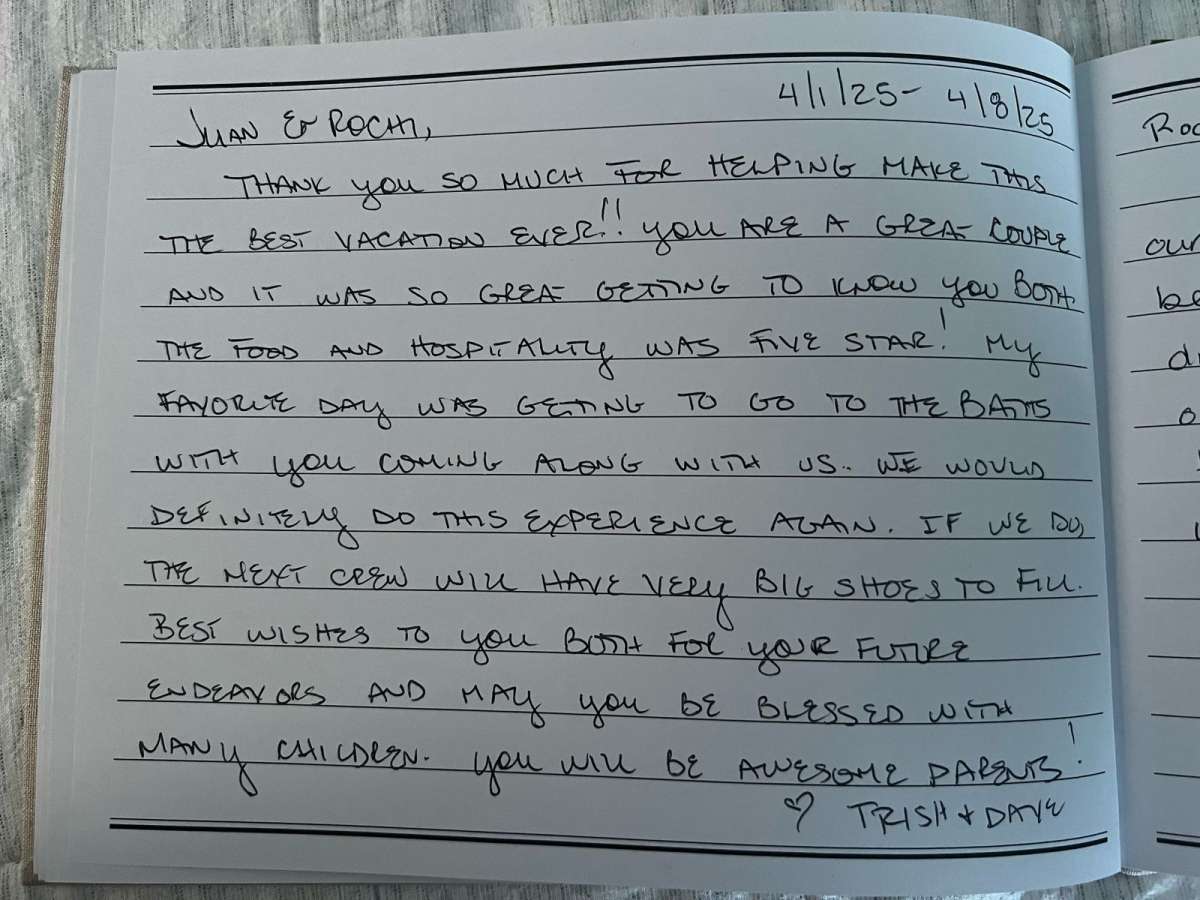 4/1/25- 4/8/25
JUAN & ROCHI,
THANK YOU SO MUCH FOR HELPING MAKE THIS
THE BEST VACATION EVER!! YOU ARE A GREAT COUPLE
AND IT WAS SO GREAT GETTING TO KNOW YOU BOTH.
THE FOOD AND HOSPITALITY WAS FIVE STAR! MY
FAVORITE DAY WAS GETTING TO GO TO THE BATHS
WITH YOU COMING ALONG WITH US. WE WOULD
DEFINITELY DO THIS EXPERIENCE AGAIN. IF WE DO,
THE NEXT CREW WILL HAVE VERY BIG SHOES TO FILL.
BEST WISHES TO YOU BOTH FOR YOUR FUTURE
ENDEAVORS AND MAY YOU BE BLESSED WITH
MANY CHILDREN. YOU WILL BE AWESOME PARENTS!
♡ TRISH + DAVE
our
be